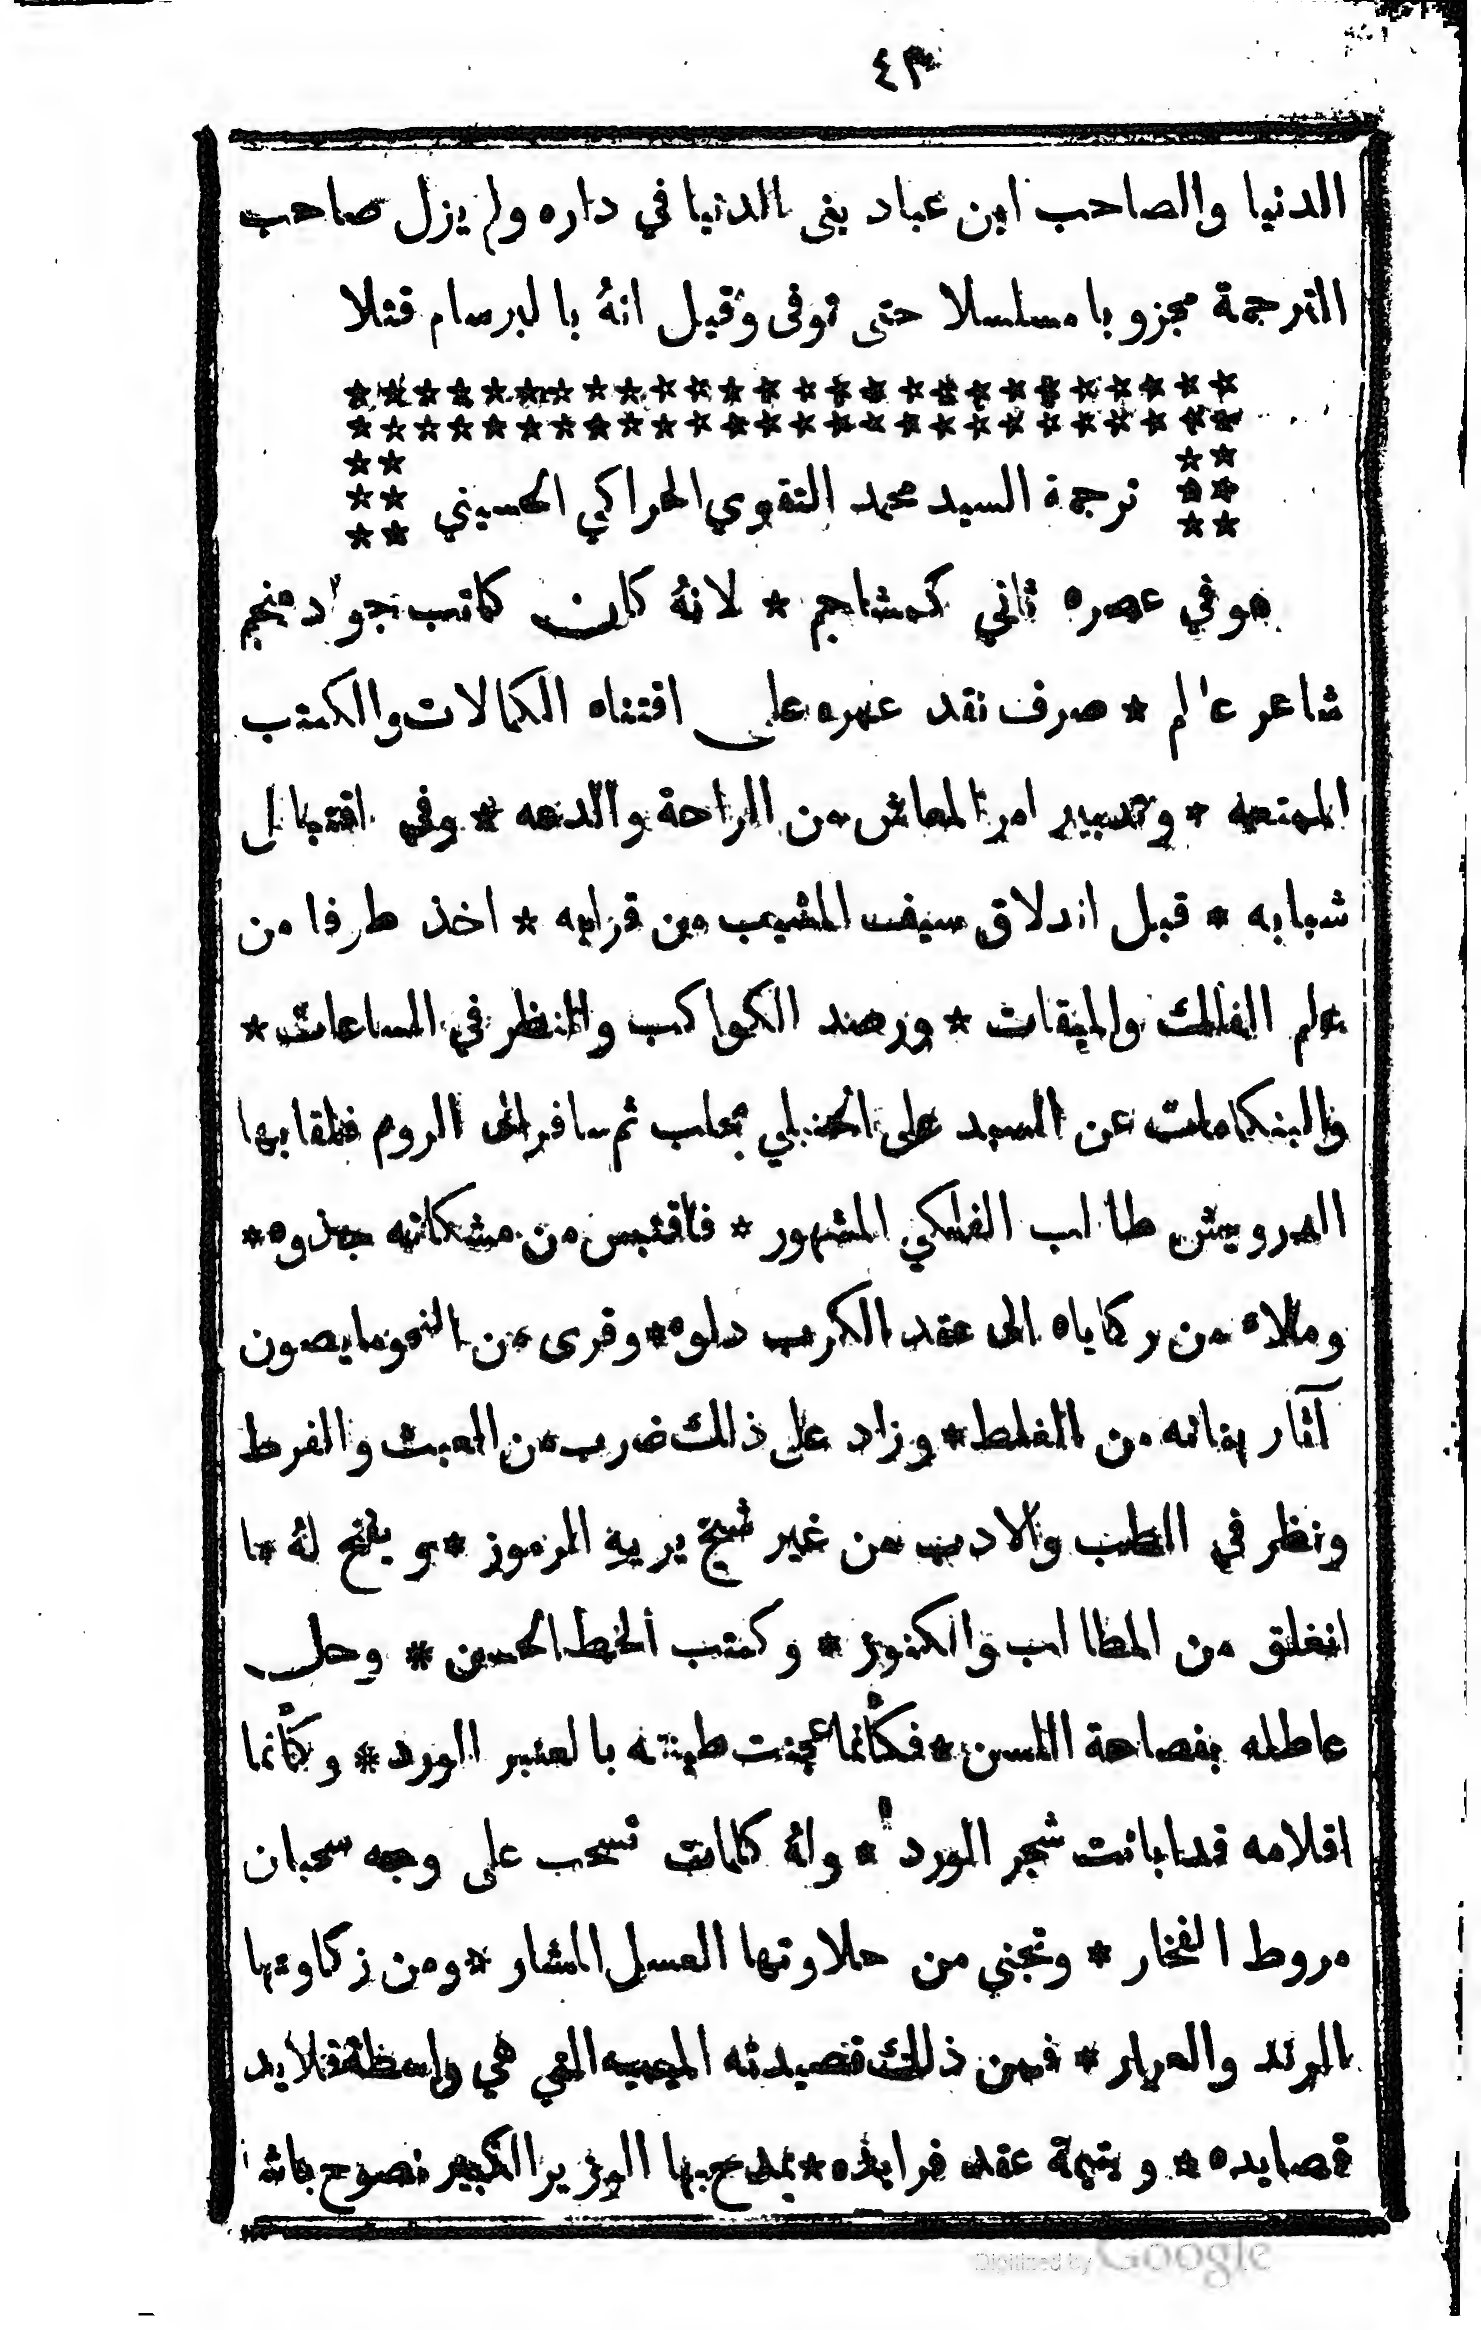 ٤٣
الدنيا والصاحب ابن عباد بنى الدنيا في داره ولم يزل صاحب
الترجمة مجزوبا مسلسلا حتى توفى وقيل انهُ بالبرسام قتلا
ترجمة السيد محمد التقوي الحراكي الحسيني
هو في عصره ثاني كمشاجم * لانهُ كان كاتب جواد منجم
شاعر عالم * صرف نقد عمره على اقتناه الكمالات والكتب
الممتعه * وتدبير امر المعاش من الراحة والدعه * وفي اقتبال
شبابه * قبل اندلاق سيف المشيب من قرابه * اخذ طرفا من
علم الفلك والميقات * ورصد الكواكب والنظر في الساعات *
والبنكامات عن السيد على الحنبلي بحلب ثم سافر الى الروم فلقا بها
الدرويش طالب الفلكي المشهور * فاقتبس من مشكاته جذوه *
وملاه من ركاياه الى عقد الكرب دلوه * وقرى من النحو ما يصون
آثار بنانه من الغلط * وزاد على ذلك ضرب من العبث والفرط
ونظر في الطب والادب من غير شيخ يريه المرموز * و يفتح لهُ ما
انغلق من المطالب والكنوز * وكتب الخط الحسن * وحل
عاطله بفصاحة اللسن * فكأنما عجنت طينته بالعنبر الورد * وكأنما
اقلامه قد ابانت شجر الورد * ولهُ كلمات تسحب على وجه سحبان
مروط الفخار * وتجني من حلاوتها العسل المشار * ومن زكاوتها
الرند والعرار * فمن ذلك قصيدته الميميه التي هي واسطة قلايد
قصايده * ويتيمة عقد فرايده * يمدح بها الوزير الكبير نصوح باشا
Digitized by Google